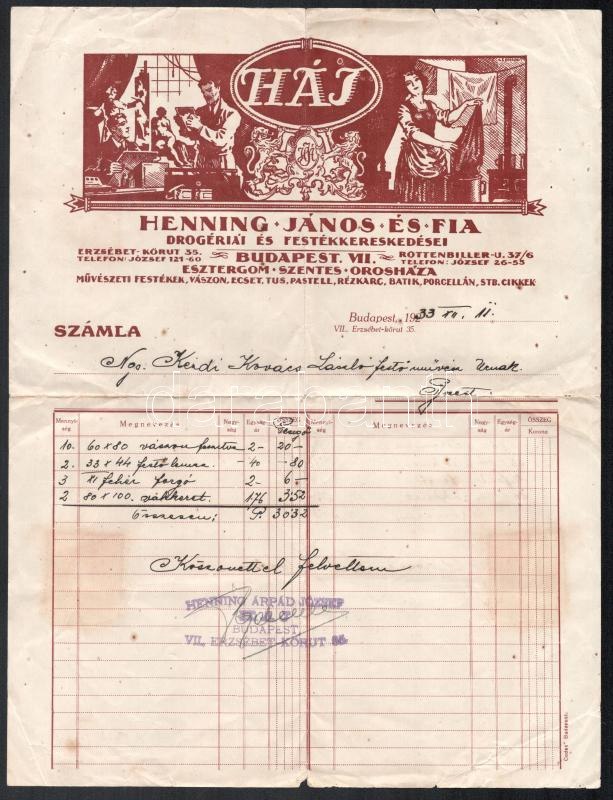 HÁJ
HJ
HENNING · JÁNOS · ÉS · FIA
DROGÉRIAI ÉS FESTÉKKERESKEDÉSEI
ERZSÉBET-KÖRUT 35.
TELEFON: JÓZSEF 121-60
BUDAPEST. VII.
ROTTENBILLER-U. 37/6
TELEFON: JÓZSEF 26-55
ESZTERGOM · SZENTES · OROSHÁZA
MŰVÉSZETI FESTÉKEK, VÁSZON, ECSET, TUS, PASTELL, RÉZKARG, BATIK, PORCELLÁN, STB. CIKKEK
Budapest, 1933 XII. 11.
VII., Erzsébet-körut 35.
SZÁMLA
Ngs. Kézdi Kovács László festőművész Urnak
Mennyiség Megnevezés Nagyság Egységár Pengő Mennyiség Megnevezés Nagyság Egységár ÖSSZEG Korona
10. 60 x 80 vászon feszitve 2- 20-
2. 33 x 44 40 -80
3 XI fehér 2- 6-
2 80 x 100. 176 352
Összesen: P. 3032
Köszönettel felvettem
HENNING ÁRPÁD JÓZSEF
BUDAPEST
VII., ERZSÉBET-KÖRUT 35.
Codex" Budapest.
darabanth